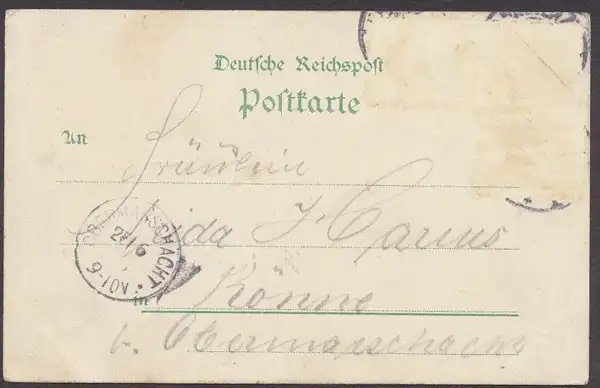 Deutsche Reichspost
Postkarte
An
Fräulein
Ida Harms
in Könne
b. Obermarschacht
OBERMARSCHACHT
9-10V